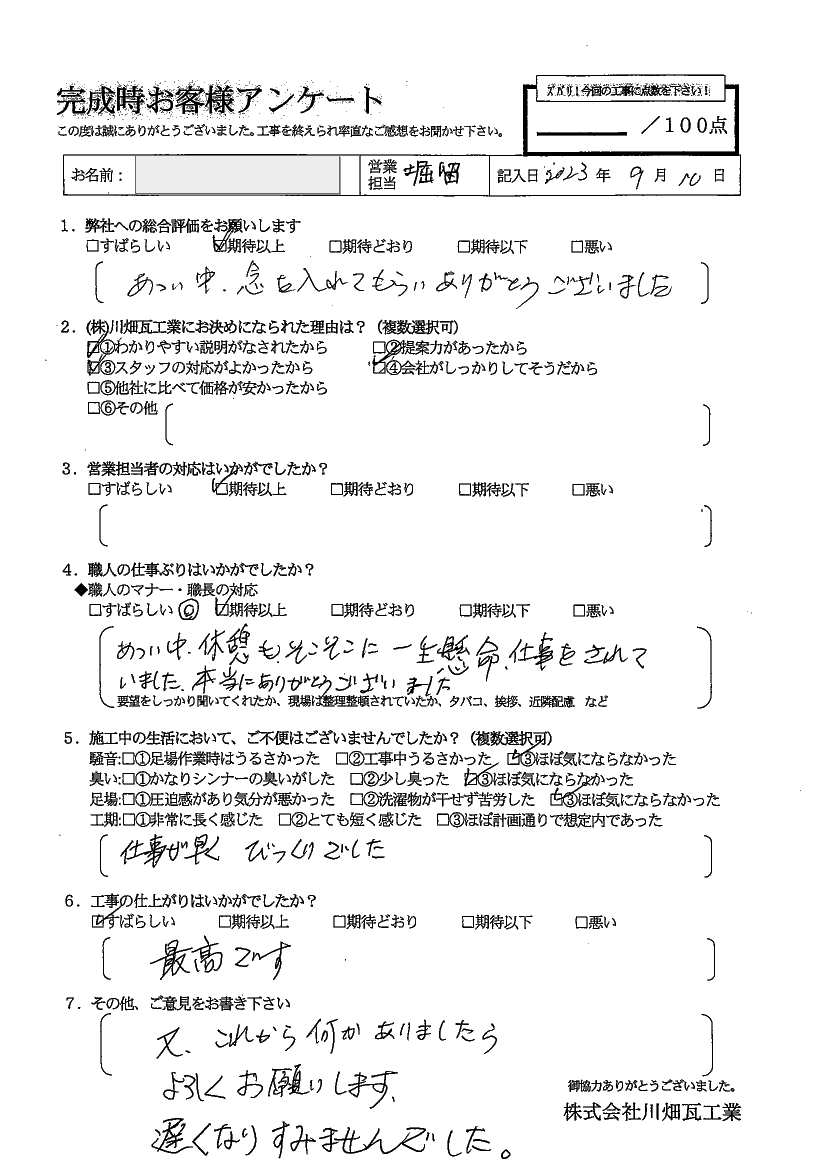 完成時お客様アンケート
ズバリ!今回の工事に点数を下さい!
/100点
この度は誠にありがとうございました。工事を終えられ率直なご感想をお聞かせ下さい。
お名前: 営業担当 堀留 記入日 2023年 9月 10日
1.弊社への総合評価をお願いします
□すばらしい ☑期待以上 □期待どおり □期待以下 □悪い
あつい中、念を入れてもらいありがとうございました
2.(株)川畑瓦工業にお決めになられた理由は?(複数選択可)
☑①わかりやすい説明がなされたから □②提案力があったから
☑③スタッフの対応がよかったから ☑④会社がしっかりしてそうだから
□⑤他社に比べて価格が安かったから
□⑥その他
3.営業担当者の対応はいかがでしたか?
□すばらしい ☑期待以上 □期待どおり □期待以下 □悪い
4.職人の仕事ぶりはいかがでしたか?
◆職人のマナー・職長の対応
□すばらしい ◎ ☑期待以上 □期待どおり □期待以下 □悪い
あつい中、休憩も、そこそこに 一生懸命、仕事をされて
いました、本当にありがとうございました
要望をしっかり聞いてくれたか、現場は整理整頓されていたか、タバコ、挨拶、近隣配慮 など
5.施工中の生活において、ご不便はございませんでしたか?(複数選択可)
騒音:□①足場作業時はうるさかった □②工事中うるさかった ☑③ほぼ気にならなかった
臭い:□①かなりシンナーの臭いがした □②少し臭った ☑③ほぼ気にならなかった
足場:□①圧迫感があり気分が悪かった □②洗濯物が干せず苦労した ☑③ほぼ気にならなかった
工期:□①非常に長く感じた □②とても短く感じた □③ほぼ計画通りで想定内であった
仕事が早く びっくりでした
6.工事の仕上がりはいかがでしたか?
☑すばらしい □期待以上 □期待どおり □期待以下 □悪い
最高です
7.その他、ご意見をお書き下さい
又、これから何かありましたら
よろしくお願いします、
遅くなりすみませんでした。
御協力ありがとうございました。
株式会社川畑瓦工業